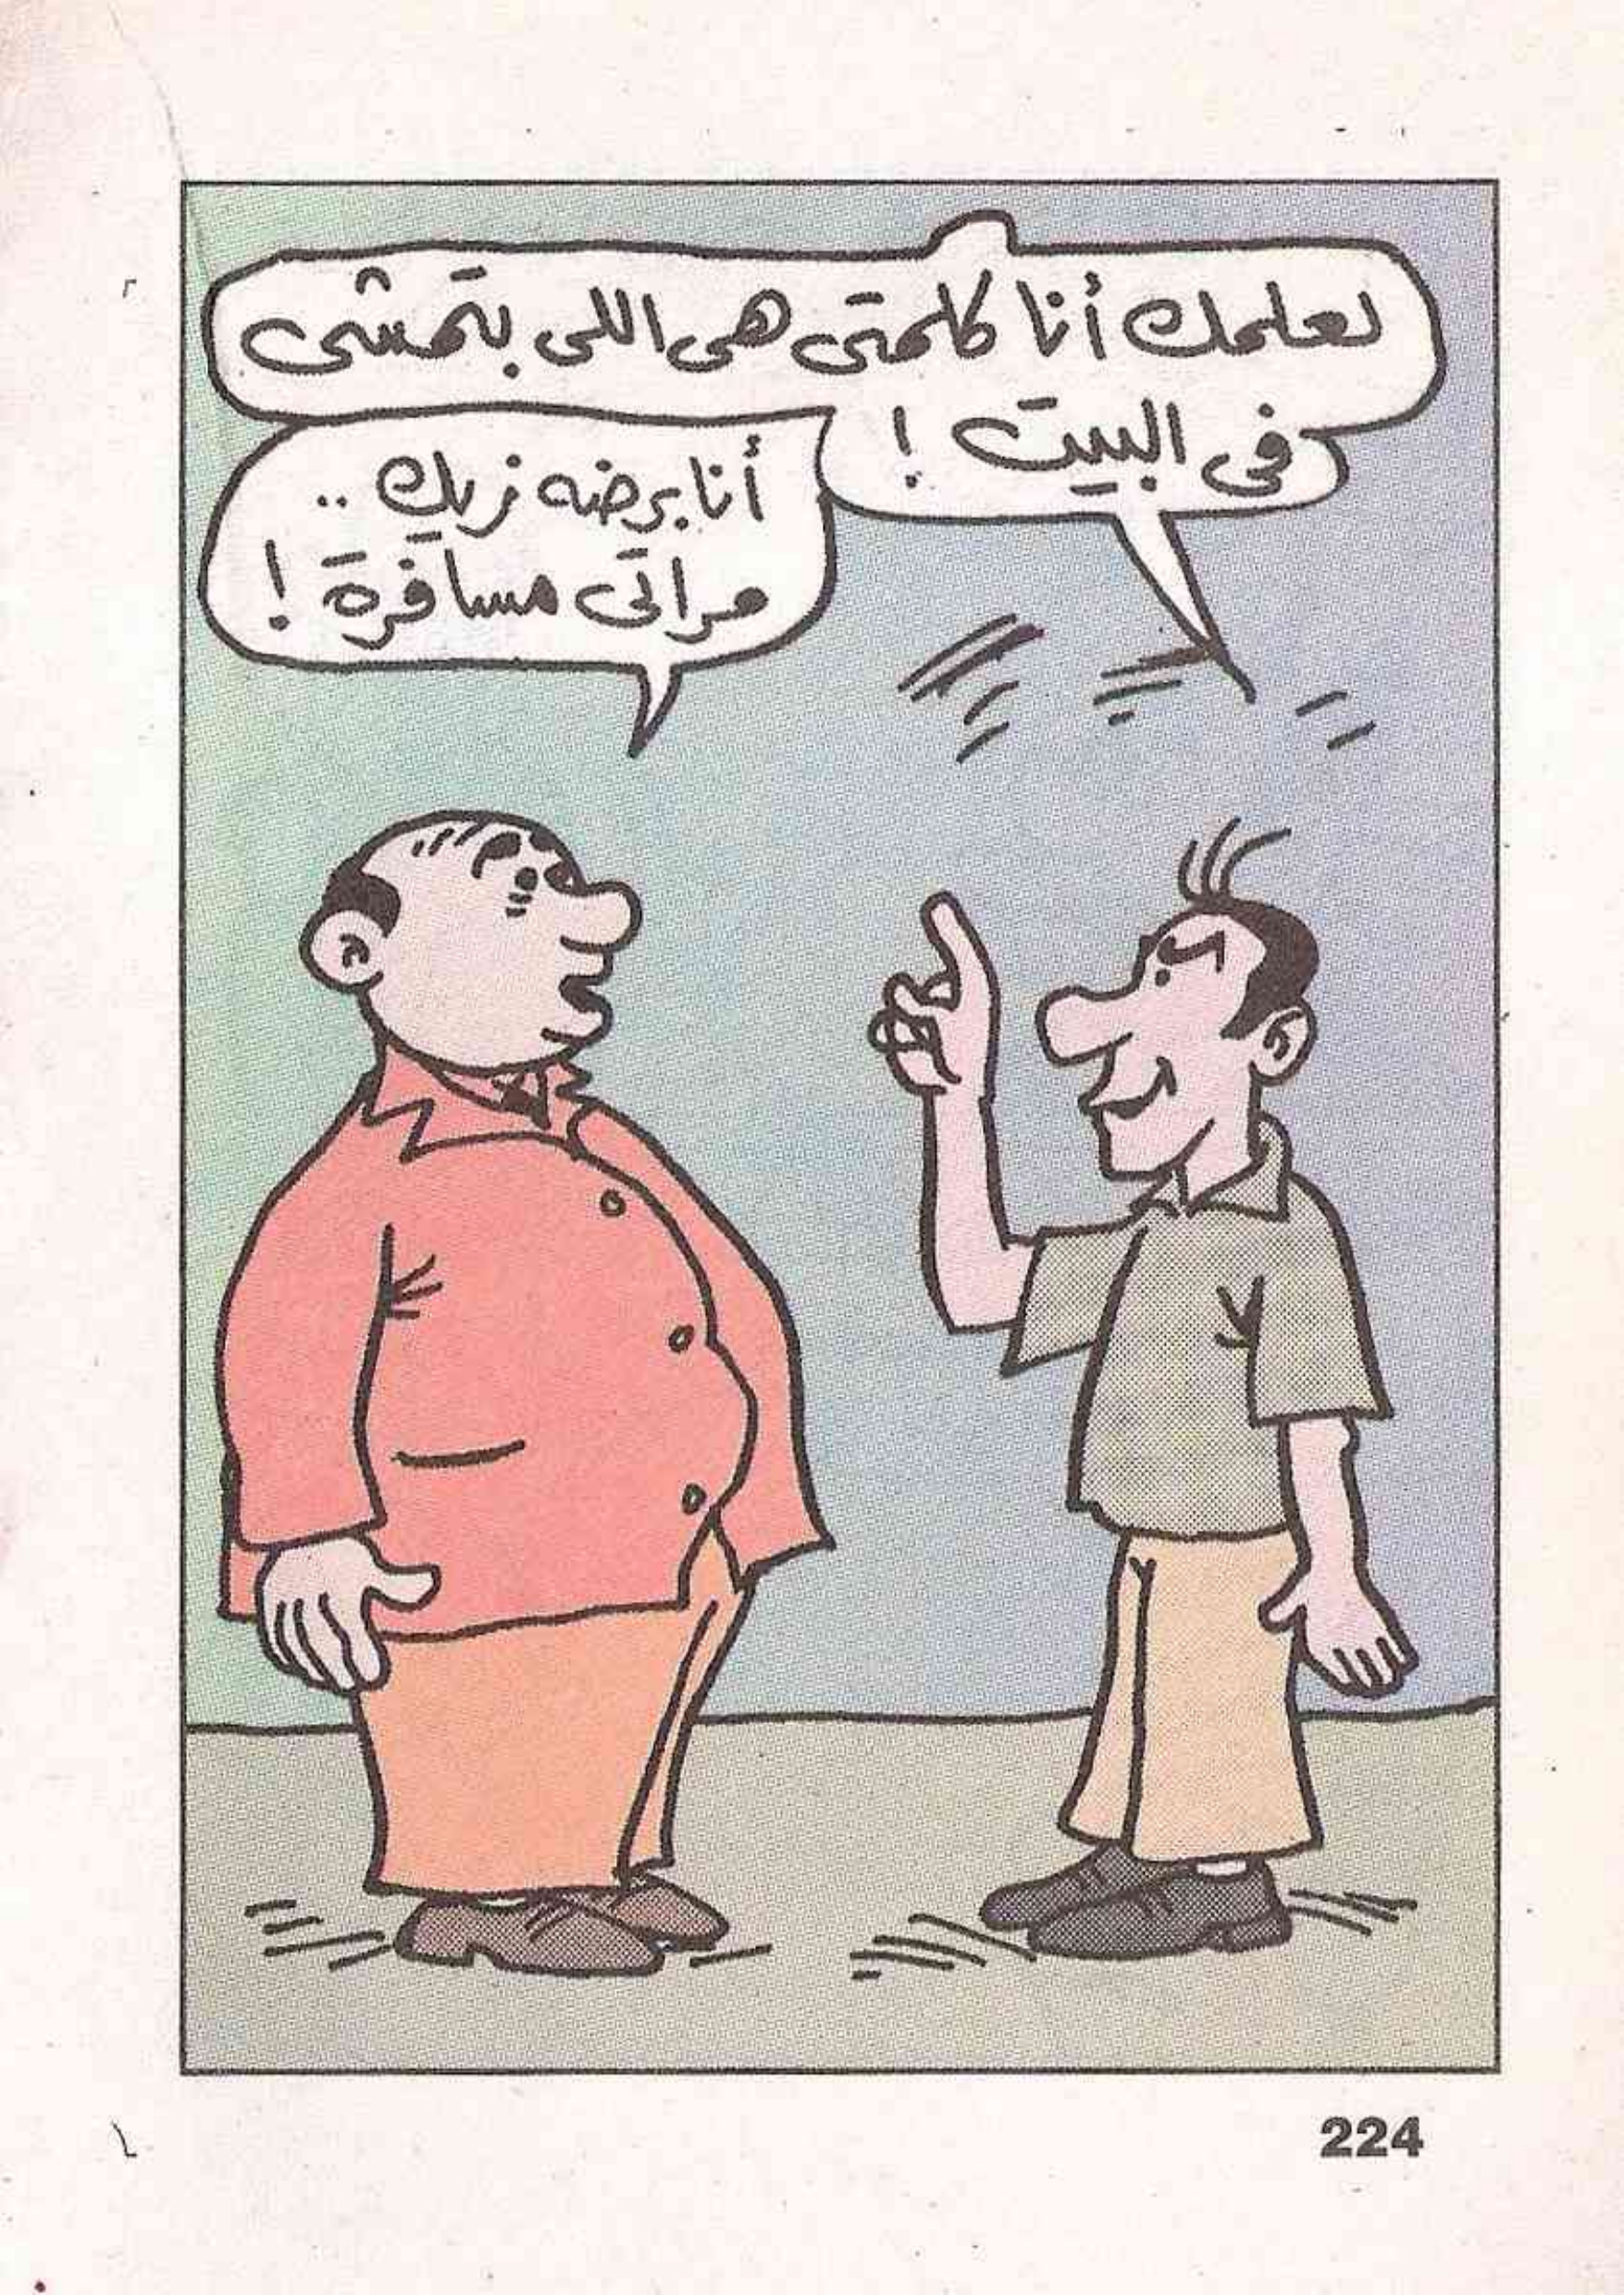 لعلمك أنا كلمتى هى اللى بتمشى
فى البيت !
أنا برضه زيك ..
مراتى مسافرة !
224